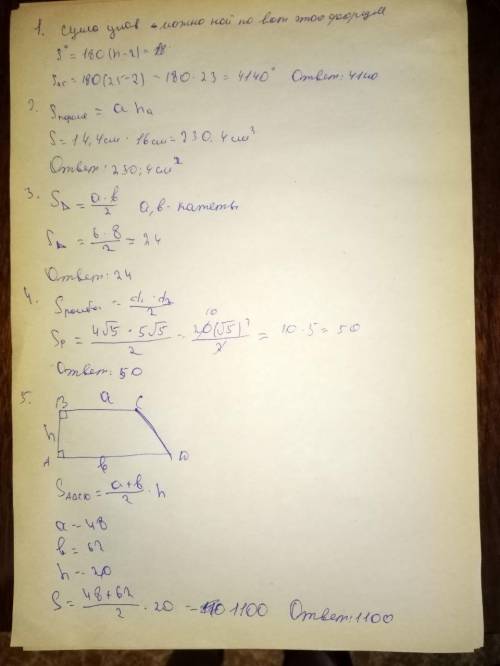 1. Сумма углов можно най по вот этой формуле
S° = 180(n-2) =
S₂₅ = 180(25-2) = 180·23 = 4140° Ответ: 4140
2. Sпарал = a hₐ
S = 14,4см · 16см = 230,4см³
Ответ: 230,4см²
3. S△ = a·b/2 a, b - катеты
S = 6·8/2 = 24
Ответ: 24
4. Sромба = d₁·d₂/2
Sр = 4√5 · 5√5/2 = 20(√5)²/2 = 10·5 = 50
10
Ответ: 50
5. B a C
h
A b D
SABCD = a+b/2 · h
a - 48
b = 62
h - 20
S = 48+62/2 · 20 = 1100 Ответ: 1100